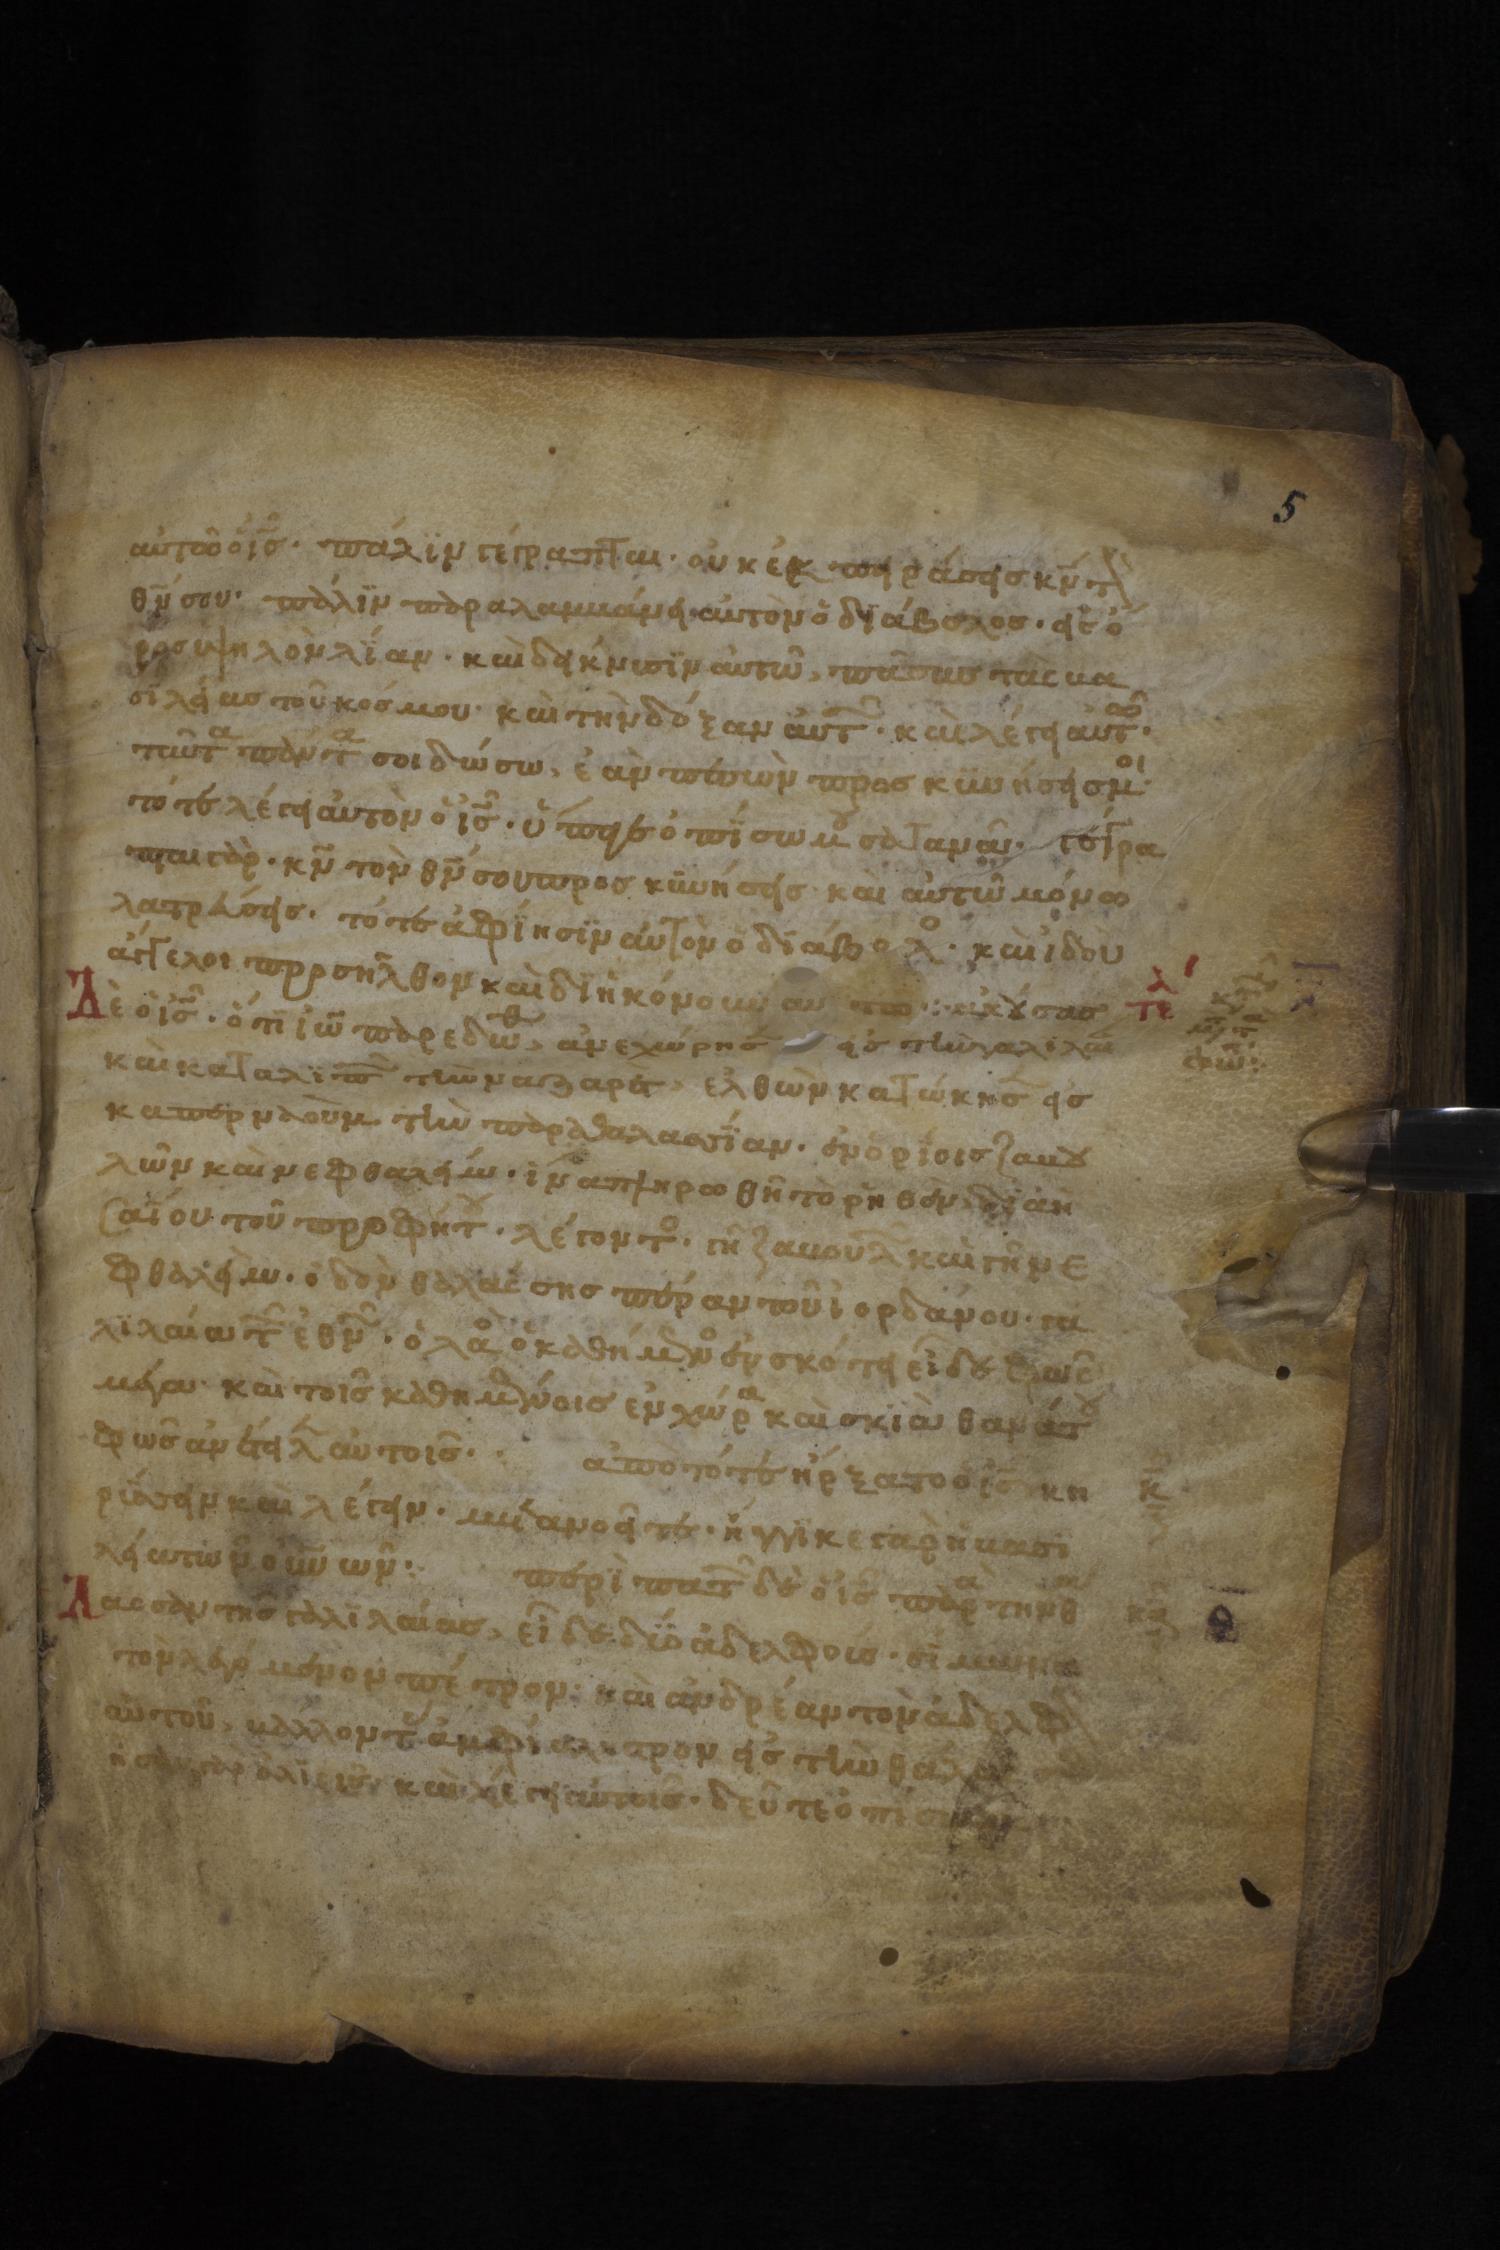 5
αὐτῶ ὁ ἰς̅· πάλϊν γέγραπται· οὐκ ἐκπηράσης κν̅ τὸ
θν̅ σου· πάλϊν παραλαμβάνει αὐτὸν ὁ διάβολος· εἰς ὄ
ρος υψηλὸν λΐαν· καὶ δηκνυσϊν αὐτῶ, πάσας τὰς βα
σιλείας τοῦ κόσμου· καὶ τὴν δόξαν αὐτ· καὶ λέγει αὐτῶ·
ταῦτα πάντα σοι δώσω, ἐὰν πεσὼν προσκϋνήσης μοι·
τότε λέγει αὐτὸν ὁ ἰς̅· ὕπαγε ὀπΐσω μου σατανᾶ· γέγρα
πται γὰρ· κν̅ τὸν θν̅ σου προσκϋνήσης· καὶ αὐτῶ μόνω
λατρεύσης· τότε ἀφΐησϊν αὐτὸν ὁ διάβολο· καὶ ἰδοὺ
ἄγγελοι προσῆλθον καὶ διηκόνουν αυτω ἀκούσας
Δὲ ὁ ἰς̅· ὅτι ἰω̅ παρεδωθ, ἀνεχώρησ εἰς τὴν γαλιλαι
καὶ καταλιπ τὴν ναζαρὲτ, ἐλθὼν κατώκησ εἰς
καπερναοὺμ τὴν παραθαλασσΐαν· ἐν ὁρίοις ζαβου
λὼν καὶ νεφθαλήμ· ἵνα πληρωθῆ τὸ ρηθὲν διὰ ἡ
σαΐου τοῦ προφήτου· λέγοντος· γῆ ζαβουλ καὶ γῆ νε
φθαλήμ· ὁδὸν θαλάσσης πέραν τοῦ ἰορδάνου· γα
λϊλαία τ ἐθν· ὁ λαο ὁ καθήμενος ἐν σκότη εἶδε φῶς
μέγα· καὶ τοῖς καθημένοις ἐν χώρα καὶ σκιὰ θανάτου
φῶς ἀνέτηλ αὐτοῖς· ἀπὸ τότε ἤρξατο ὁ ἰς̅ κη
ρύσσην καὶ λέγην· μετανοῆτε· ἤγγϊκε γὰρ ἡ βασι
λεία τῶν οὐνων· περὶ πατ δὲ ὁ ἰς παρα τὴν θ
Λασσαν της γαλϊλαίας, εἶδε δύο ἀδελφοὺς· σίμωνα
τὸν λεγόμενον πέτρον· καὶ ἀνδρέαν τὸν ἀδελφὸ
αὐτοῦ, βάλλοντ ἀμφίβληστρον εἰς τὴν θάλασ
ἦσαν γὰρ ἁλϊεῖς, καὶ λέγει αὐτοῖς· δεῦτε ὀπίσω